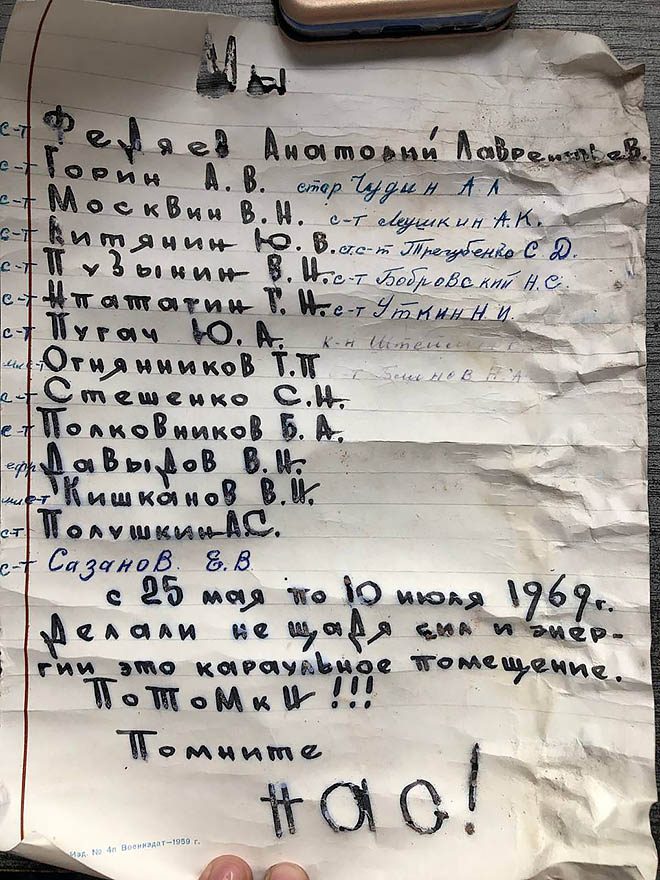 Мы
с-т Феряев Анатолий Лаврентьев.
с-т Горин А. В. стар Чудин А Л
с-т Москвин В. И. с-т Мушкин А.К.
с-т Китянин Ю. В. ст. с-т Трегубенко С. Д.
с-т Пузынин В. И. с-т Бобровский Н.С.
с-т Ипататин Г. И. с-т Уткин Н. И.
с-т Пугач Ю. А. к-н
мл с-т Огнянников Т. П т Блинов Н А
с-т Стешенко С. Н.
с-т Полковников Б. А.
ефр Давыдов В. Н.
мл с-т Кишканов В. И.
с-т Полушкин А.С.
с-т Сазанов. Е. В
с 25 мая по 10 июля 1969 г.
делали не щадя сил и энер-
гии это караульное помещение.
Потомки !!!
Помните
нас!
Изд. № 4п Воениздат—1959 г.